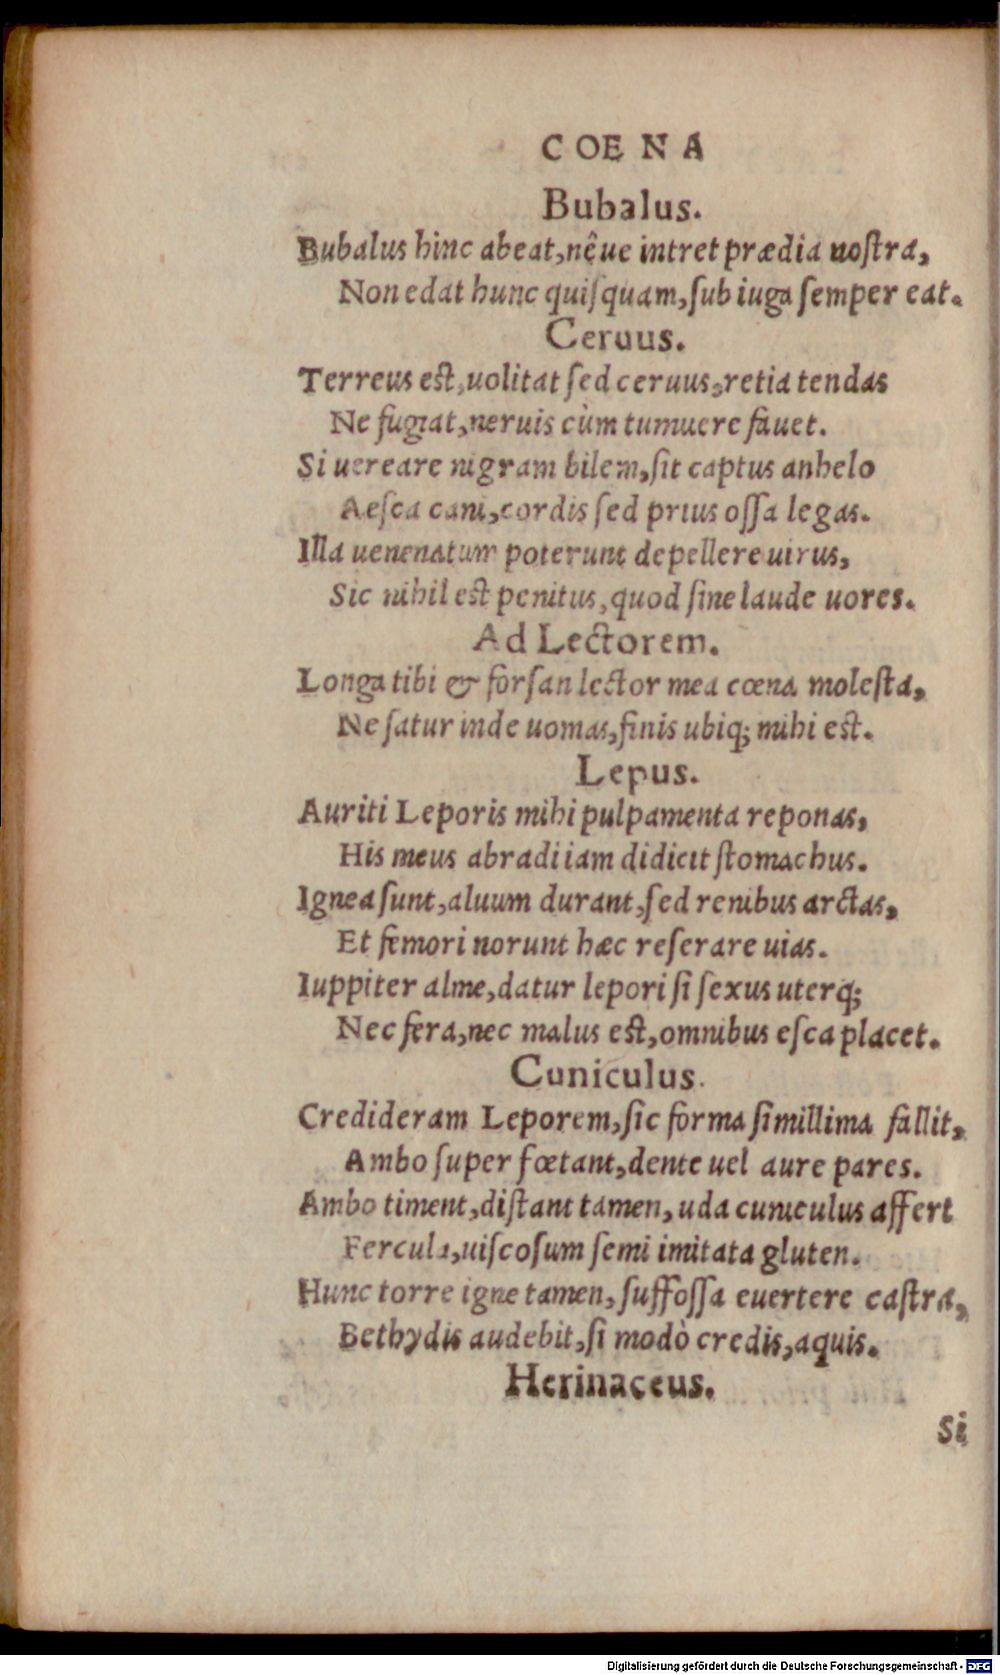 COENA
Bubalus.
Bubalus hinc abeat, nêue intret prædia nostra,
Non edat hunc quisquam, sub iuga semper eat.
Ceruus.
Terreus est, uolitat sed ceruus, retia tendas
Ne fugiat, neruis cùm tumuere fauet.
Si uereare nigram bilem, sit captus anhelo
Aesca cani, cordis sed prius ossa legas.
Illa uenenatum poterunt depellere uirus,
Sic nihil est penitus, quod sine laude uores.
Ad Lectorem.
Longa tibi & forsan lector mea cœna molesta,
Ne satur inde uomas, finis ubiq; mihi est.
Lepus.
Auriti Leporis mihi pulpamenta reponas,
His meus abradi iam didicit stomachus.
Ignea sunt, aluum durant, sed renibus arctas,
Et femori norunt hæc reserare uias.
Iuppiter alme, datur lepori si sexus uterq;
Nec fera, nec malus est, omnibus esca placet.
Cuniculus.
Credideram Leporem, sic forma simillima fallit,
Ambo super fœtant, dente uel aure pares.
Ambo timent, distant tamen, uda cuniculus affert
Fercula, uiscosum semi imitata gluten.
Hunc torre igne tamen, suffossa euertere castra,
Bethydis audebit, si modò credis, aquis.
Herinaceus.
Si
Digitalisierung gefördert durch die Deutsche Forschungsgemeinschaft - DFG